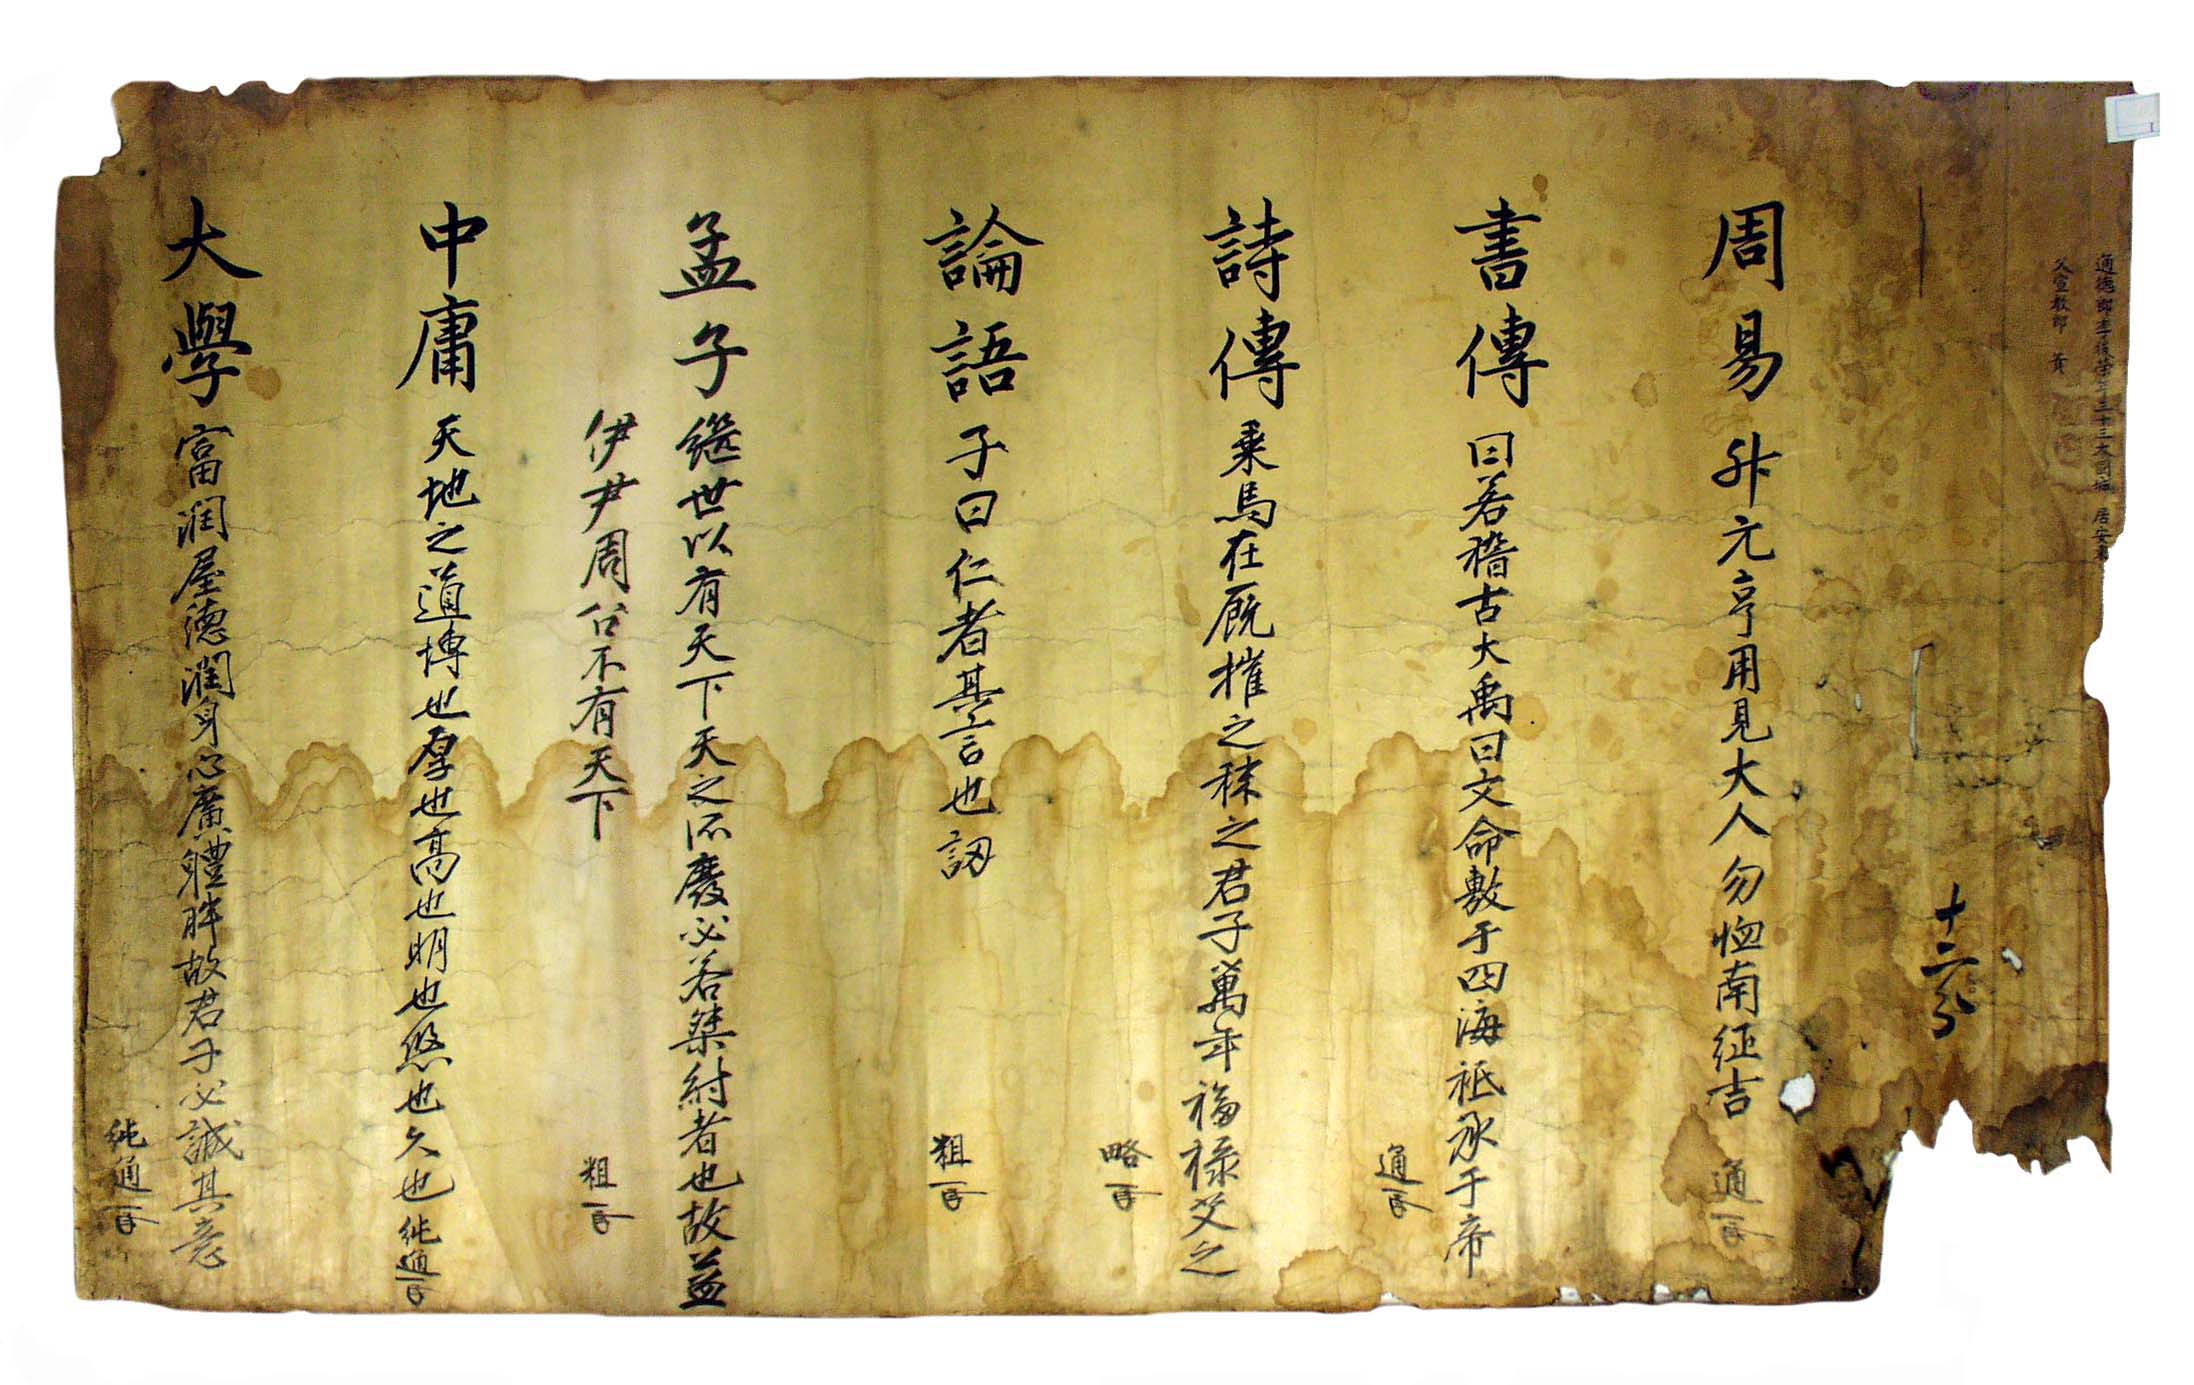 通德郎李後榮年三十三本固城 居安東
父宣教郎 黃
十二分
周易 升元亨用見大人勿恤南征吉 通
書傳 曰若稽古大禹曰文命敷于四海祗承于帝
通
詩傳 乘馬在厩摧之秣之君子萬年福祿艾之
略
論語 子曰仁者其言也訒
粗
孟子 繼世以有天下天之所廢必若桀紂者也故益
伊尹周公不有天下
粗
中庸 天地之道博也厚也高也明也悠也久也 純通
大學 富潤屋德潤身心廣體胖故君子必誠其意
純通